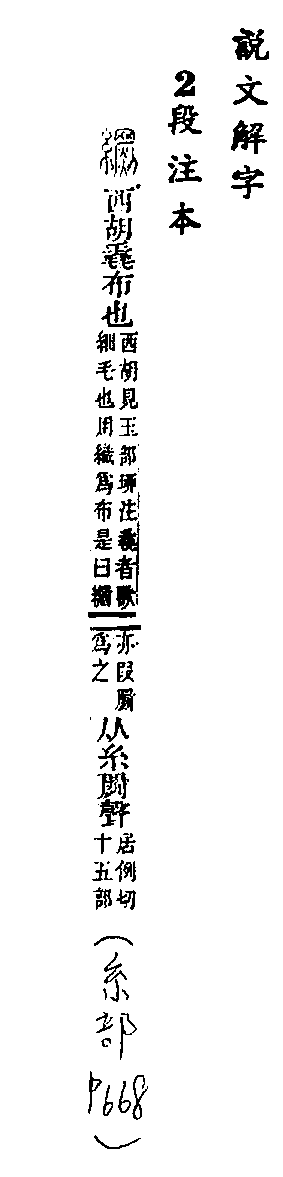 說文解字
2段注本
繝西胡毳布也
西胡見玉部琊注毳者獸
細毛也用織為布是曰繝
亦叚罽
為之
从糸罽聲
居例切
十五部
(糸部
P668)